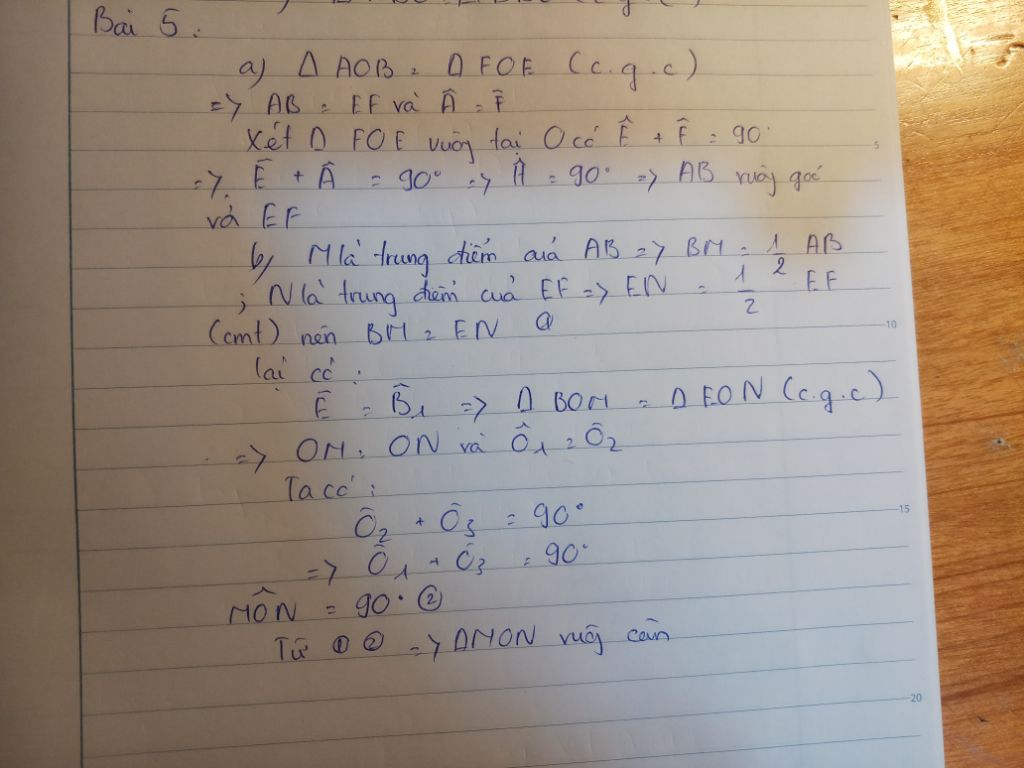 Bài 5:
a) Δ AOB = Δ FOE (c.g.c)
=> AB = EF và Â = F̂
Xét Δ FOE vuông tại O có Ê + F̂ = 90°
=> Ê + Â = 90° => Ĥ = 90° => AB vuông góc
với EF
b, M là trung điểm của AB => BM = 1/2 AB
; N là trung điểm của EF => EN = 1/2 EF
(cmt) nên BM = EN ①
lại có :
Ê = B̂1 => Δ BOM = Δ EON (c.g.c)
=> OM = ON và Ô1 = Ô2
Ta có :
Ô2 + Ô3 = 90°
=> Ô1 + Ô3 = 90°
MÔN = 90° ②
Từ ① ② => ΔMON vuông cân
5
10
15
20